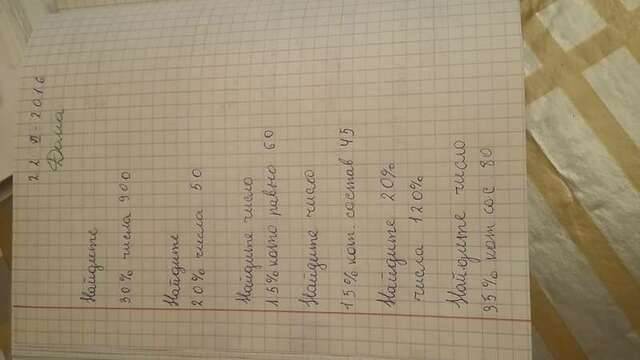 22 VI-2016
Дома
Найдите
30% числа 900
Найдите
20% числа 50
Найдите число
15% кото равно 60
Найдите число
15% кот. состав 45
Найдите 20%
числа 120%
Найдите число
95% кот сос 80